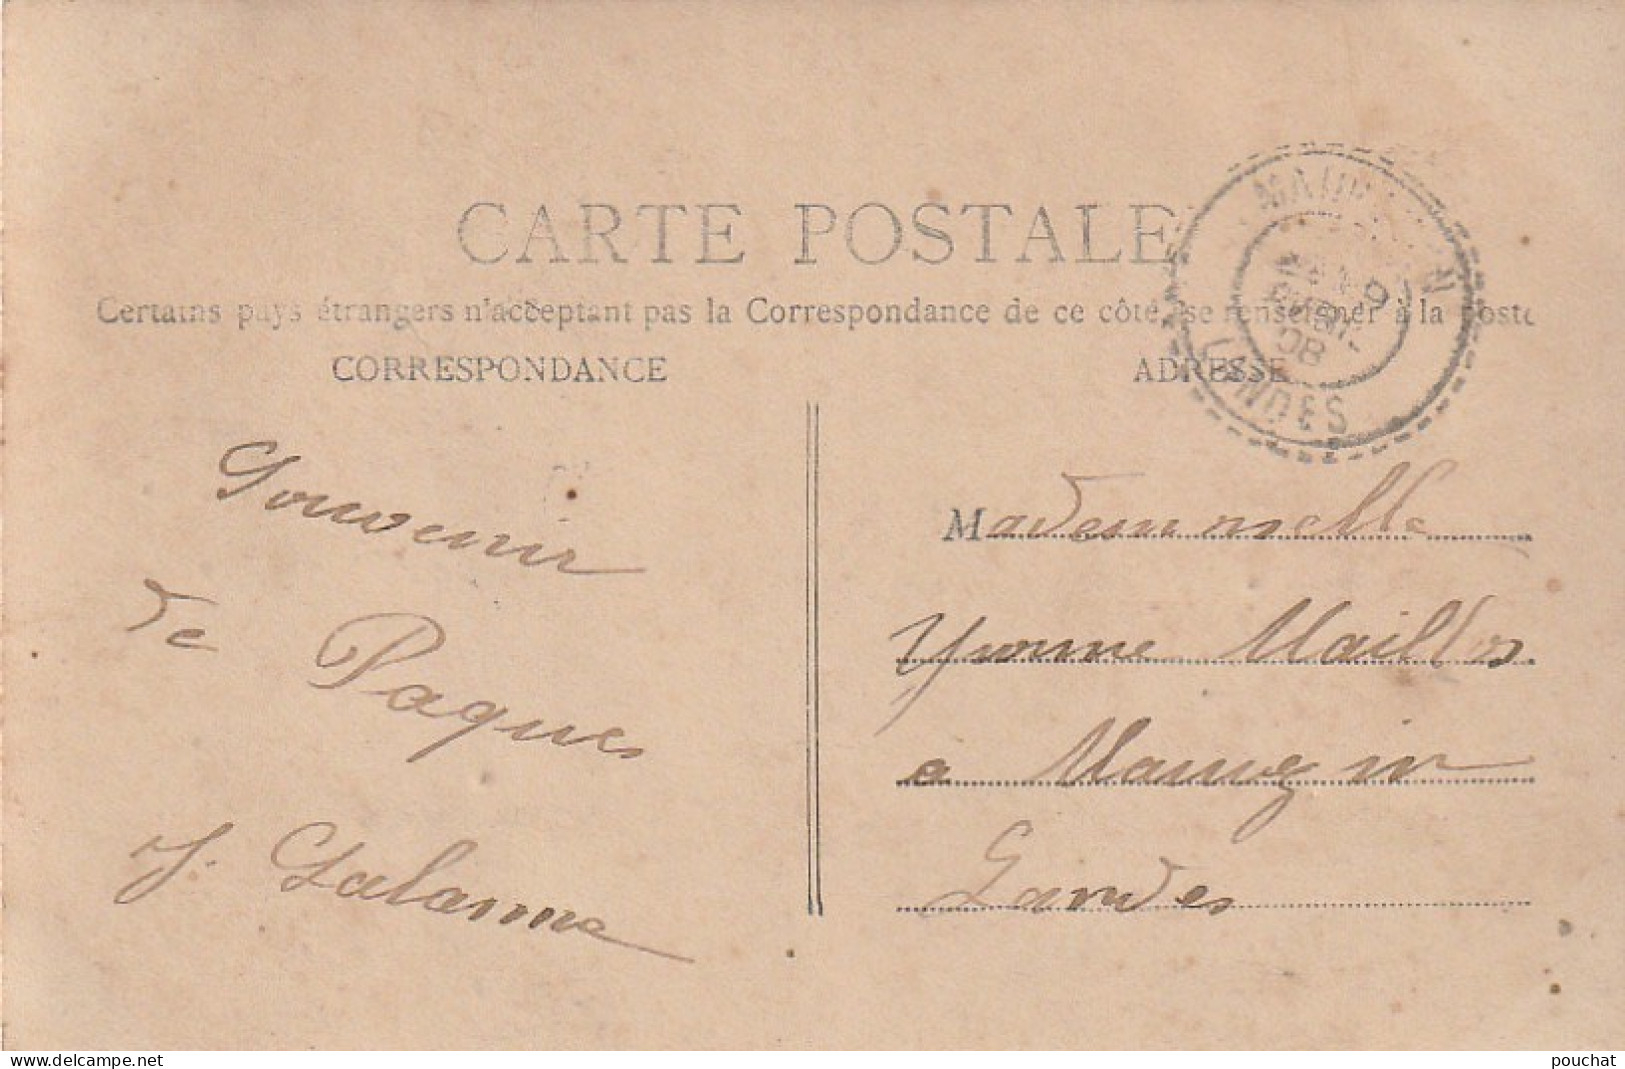 CARTE POSTALE
Certains pays étrangers n'acceptant pas la Correspondance de ce côté, se renseigner à la Poste
CORRESPONDANCE
ADRESSE
LANDES
08
Souvenir
de
Paques
J. Lalanne
Mademoiselle
Yvonne
a
Landes
www.delcampe.net
pouchat